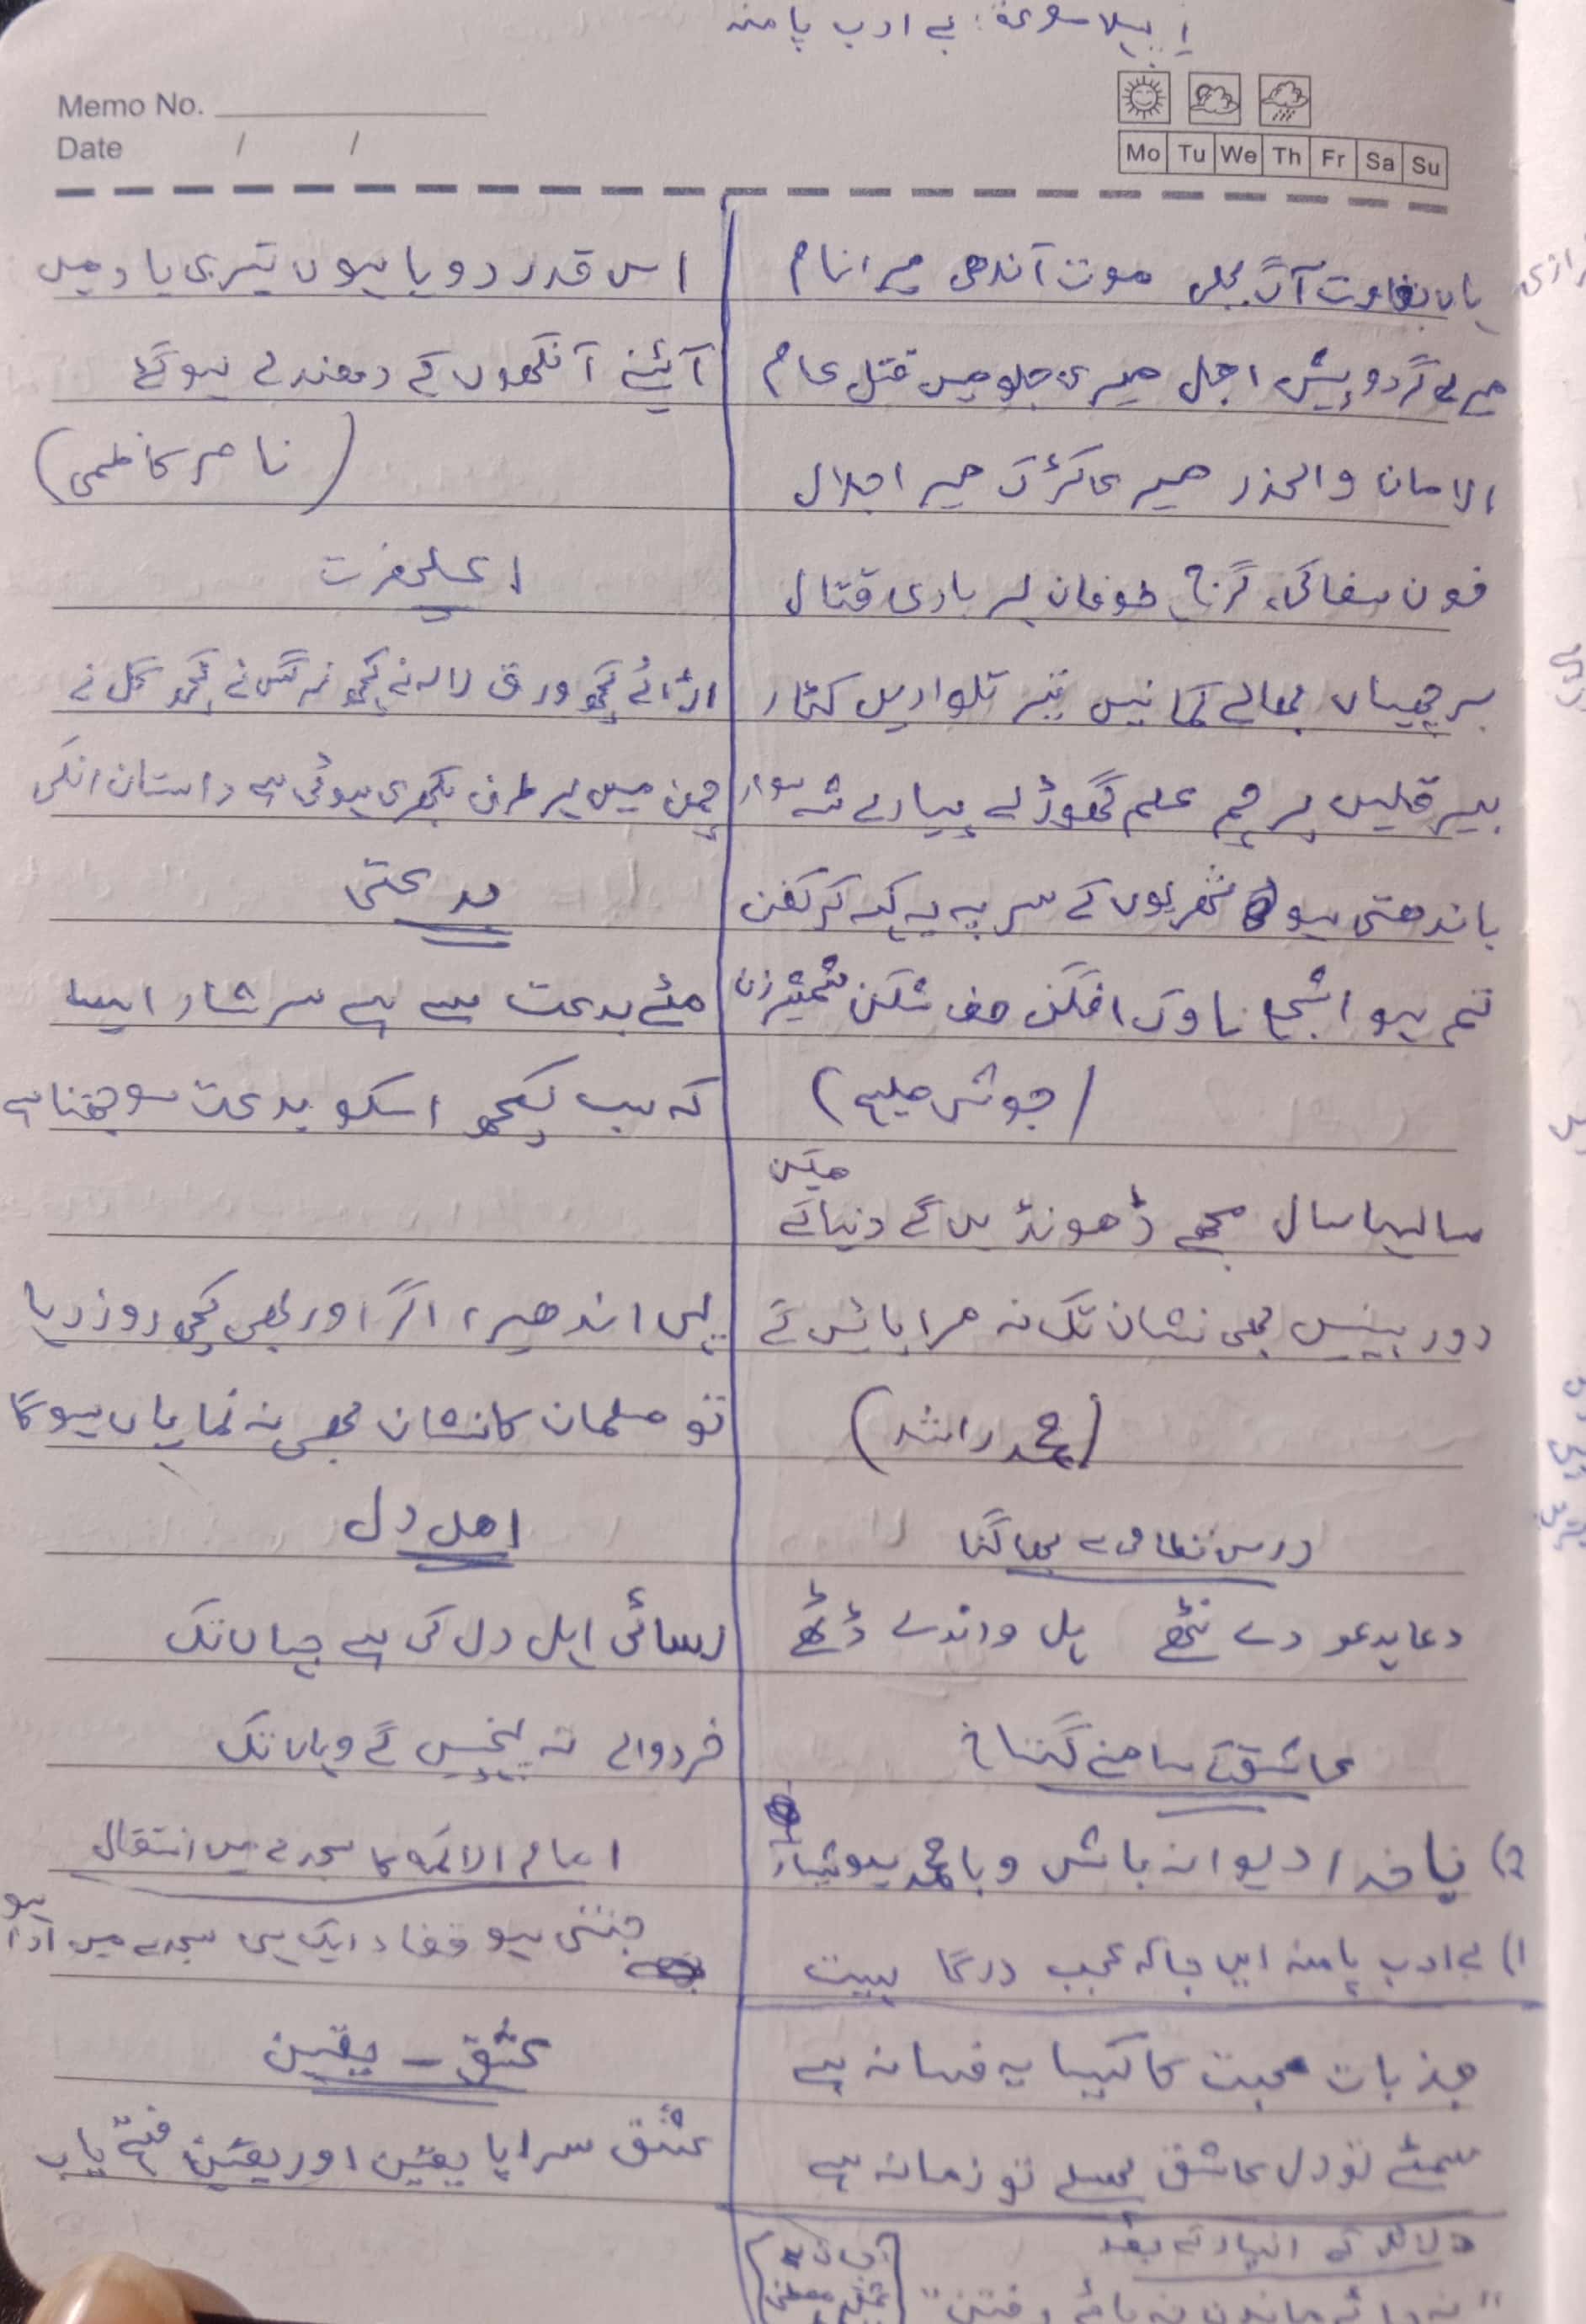 پہلا مصرعہ: بے ادب پا منہ
Memo No.
Date / /
Mo Tu We Th Fr Sa Su
ہاں بغاوت آگ بجلی موت آندھی میرا نام
میرے گردوپیش اجل میری جلو میں قتل عام
الامان والحذر میری کڑک میرا جلال
خون سفاکی، گرج، طوفان بربادی قتال
برچھیاں بھالے کمانیں تیر تلواریں کٹار
بیرقیں پرچم علم گھوڑے پیادے شہسوار
باندھتی ہوں کے سر پہ یہ کہہ کر کفن
تم ہو اشجع ناوک افگن صف شکن شمشیر زن
(جوش ملیح)
سالہا سال مجھے ڈھونڈیں گے دنیا کے مکین
دوربینیں بھی نشان تک نہ مرا پائیں گے
(محمد راشد)
درس نظامی سے بھاگنا
دعا یدعو دے نٹھے ہل واندے ڈٹھے
عاشق کے سامنے گستاخ
2) باخدا دیوانہ باش و با محمد ہوشیار
1) بے ادب پا منہ ایں جا کہ عجب درگا ہیت
جذبات محبت کا کیسا یہ فسانہ ہے
سمٹے تو دل عاشق پھیلے تو زمانہ ہے
دلائل کے انبار کے بعد
اس قدر رویا ہوں تیری یاد میں
آئینے آنکھوں کے دھندلے ہو گئے
(ناصر کاظمی)
اعلیحضرت
اڑائے کچھ ورق لالہ نے کچھ نرگس نے کچھ گل نے
چمن میں ہر طرف بکھری ہوئی ہے داستان انکی
بدعتی
مئے بدعت سے ہے سرشار ایسا
کہ سب کچھ اسکو بدعت سوجھتا ہے
یہی اندھیر، اگر اور بھی کچھ روز رہا
تو مسلمان کا نشان بھی نہ نمایاں ہوگا
اھل دل
رسائی اہل دل کی ہے جہاں تک
خرد والے نہ پہنچیں گے وہاں تک
امام الائمہ کا سجدے میں انتقال
جتنی ہو قضاء ایک ہی سجدے میں ادا ہو
عشق - یقین
عشق سراپا یقین اور یقین فتح یاب